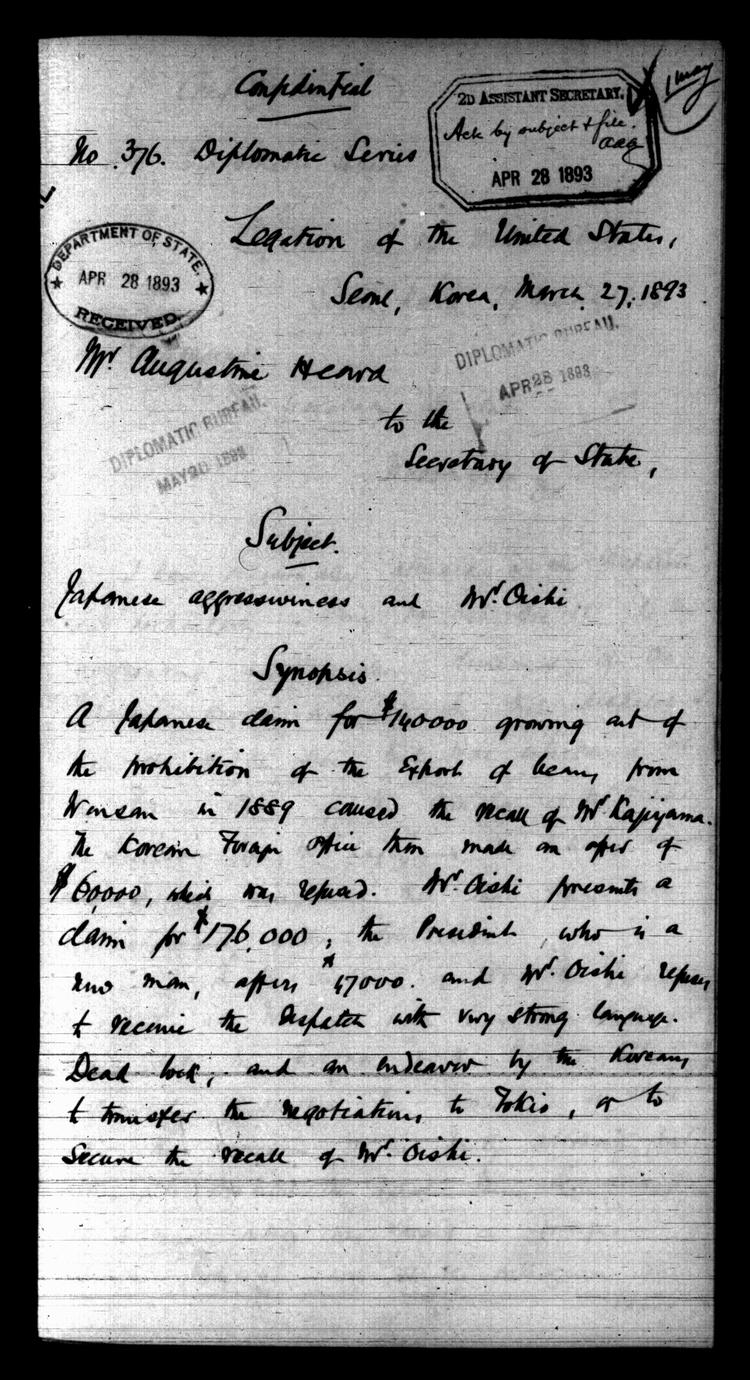 Confidential
2D ASSISTANT SECRETARY.
Ack by subject & file.
aaa
APR 28 1893
1 May
No 376. Diplomatic Series
DEPARTMENT OF STATE.
APR 28 1893
RECEIVED.
Legation of the United States,
Seoul, Korea, March 27, 1893
DIPLOMATIC BUREAU.
APR 28 1893
Mr. Augustine Heard
to the
Secretary of State,
DIPLOMATIC BUREAU.
MAY 20 1893
Subject.
Japanese aggressiveness and Mr. Oishi
Synopsis.
A Japanese claim for $140000 growing out of
the prohibition of the Export of beans from
Wensan in 1889 caused the recall of Mr. Kajiyama.
The Korean Foreign Office then made an offer of
$60,000, which was refused. Mr. Oishi presents a
claim for $176,000; the President, who is a
new man, offers $47000. and Mr. Oishi refuses
to receive the Despatch with very strong language.
Dead lock; and an endeavor by the Koreans
to transfer the negotiations to Tokio, or to
secure the recall of Mr. Oishi.